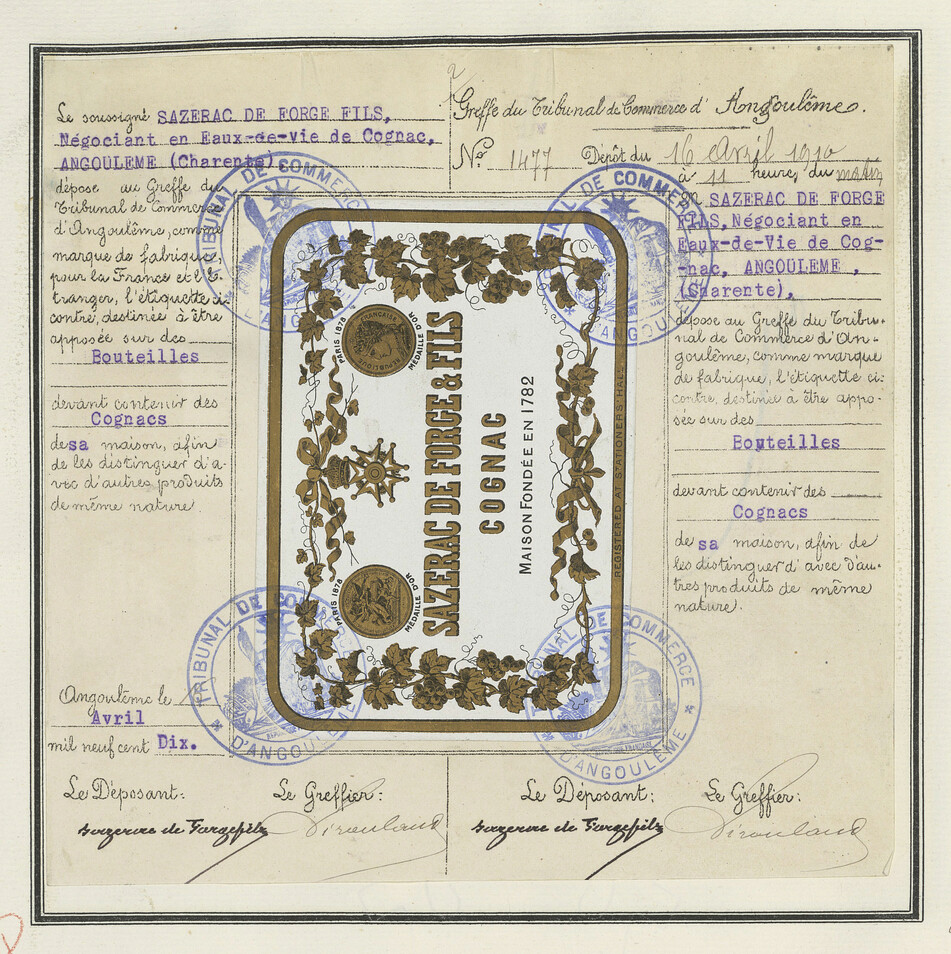 Le soussigné SAZERAC DE FORGE FILS,
Négociant en Eaux-de-Vie de Cognac,
ANGOULEME (Charente)
dépose au Greffe du
Tribunal de Commerce
d'Angoulême, comme
marque de fabrique,
pour la France et l'É-
tranger, l'étiquette ci-
contre, destinée à être
apposée sur des
Bouteilles
devant contenir des
Cognacs
de sa maison, afin
de les distinguer d'a-
vec d'autres produits
de même nature.
Angoulême le
Avril
mil neuf cent Dix.
Le Déposant:
Le Greffier:
Sazerac de Forge fils
Greffe du Tribunal de Commerce d'Angoulême.
N° 1477 Dépôt du 16 Avril 1910
à 11 heure, du matin
SAZERAC DE FORGE
FILS, Négociant en
Eaux-de-Vie de Cog-
-nac, ANGOULEME,
(Charente),
dépose au Greffe du Tribu-
nal de Commerce d'An-
goulême, comme marque
de fabrique, l'étiquette ci-
contre, destinée à être appo-
sée sur des
Bouteilles
devant contenir des
Cognacs
de sa maison, afin de
les distinguer d'avec d'au-
tres produits de même
nature.
Le Déposant:
Le Greffier:
Sazerac de Forge fils
PARIS 1878
MÉDAILLE D'OR
PARIS 1878
MÉDAILLE D'OR
SAZERAC DE FORGE & FILS
COGNAC
MAISON FONDÉE EN 1782
REGISTERED AT STATIONERS HALL
TRIBUNAL DE COMMERCE
D'ANGOULEME
TRIBUNAL DE COMMERCE
D'ANGOULEME
TRIBUNAL DE COMMERCE
D'ANGOULEME
TRIBUNAL DE COMMERCE
D'ANGOULEME